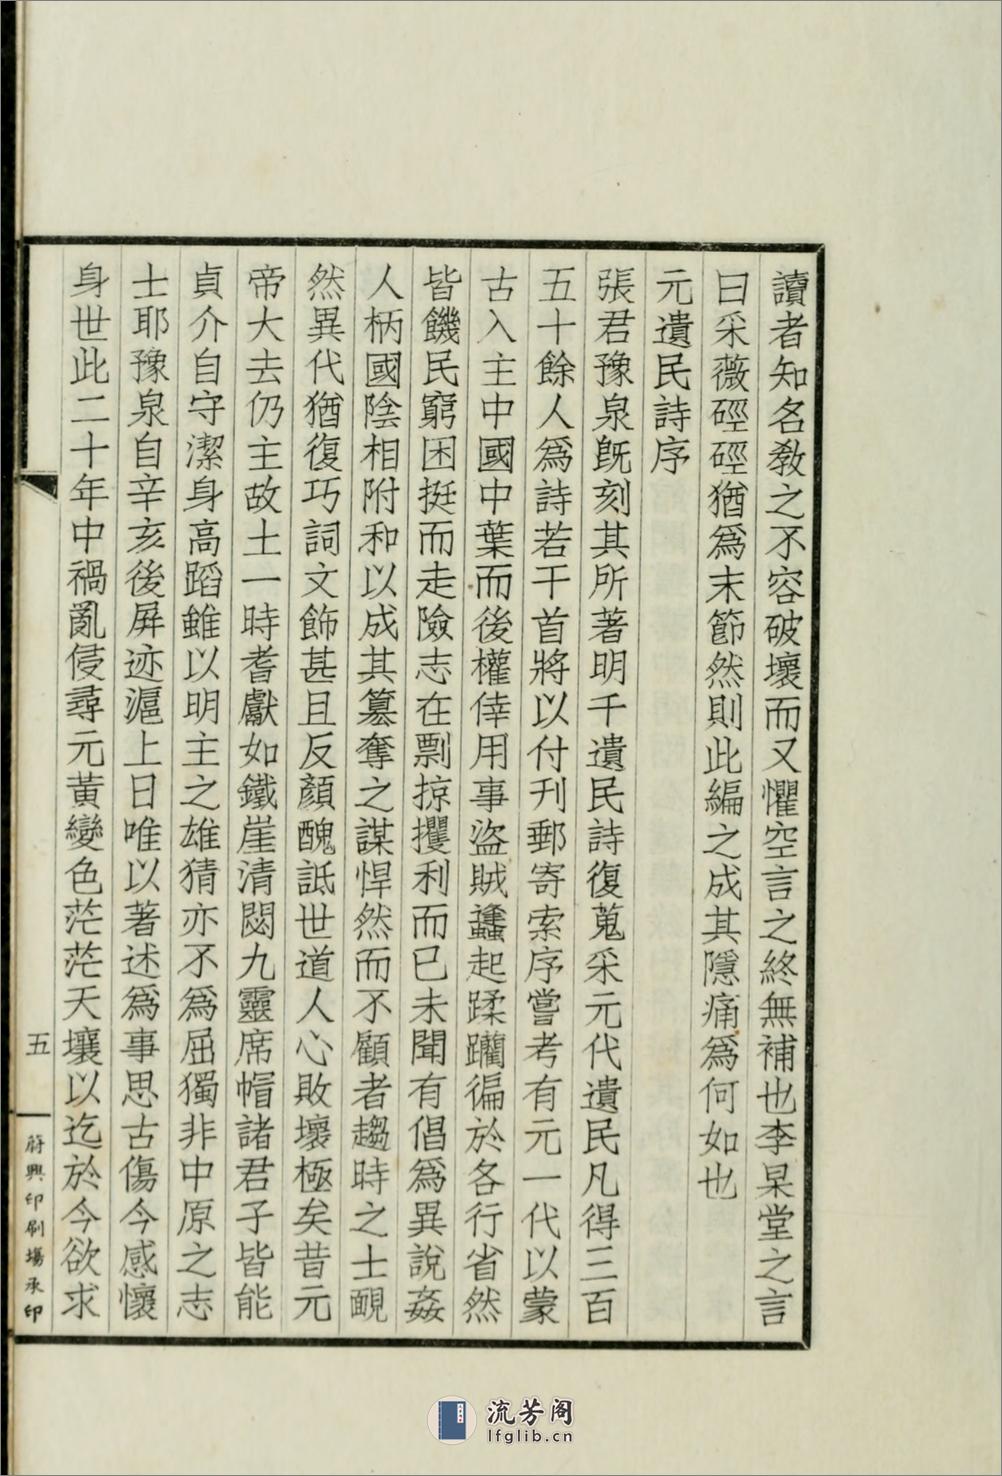 讀者知名敎之不容破壞而又懼空言之終無補也李杲堂之言
曰采薇硜硜猶爲末節然則此編之成其隱痛爲何如也
元遺民詩序
張君豫泉旣刻其所著明千遺民詩復蒐采元代遺民凡得三百
五十餘人爲詩若干首將以付刊郵寄索序嘗考有元一代以蒙
古入主中國中葉而後權倖用事盜賊蠭起蹂躪徧於各行省然
皆饑民窮困挺而走險志在剽掠攫利而已未聞有倡爲異說姦
人柄國陰相附和以成其簒奪之謀悍然而不顧者趨時之士靦
然異代猶復巧詞文飾甚且反顏醜詆世道人心敗壞極矣昔元
帝大去仍主故土一時耆獻如鐵崖淸閟九靈席帽諸君子皆能
貞介自守潔身高蹈雖以明主之雄猜亦不爲屈獨非中原之志
士耶豫泉自辛亥後屛迹滬上日唯以著述爲事思古傷今感懷
身世此二十年中禍亂侵尋元黃變色茫茫天壤以迄於今欲求
五
蔚興印刷場承印
流芳阁
lfglib.cn